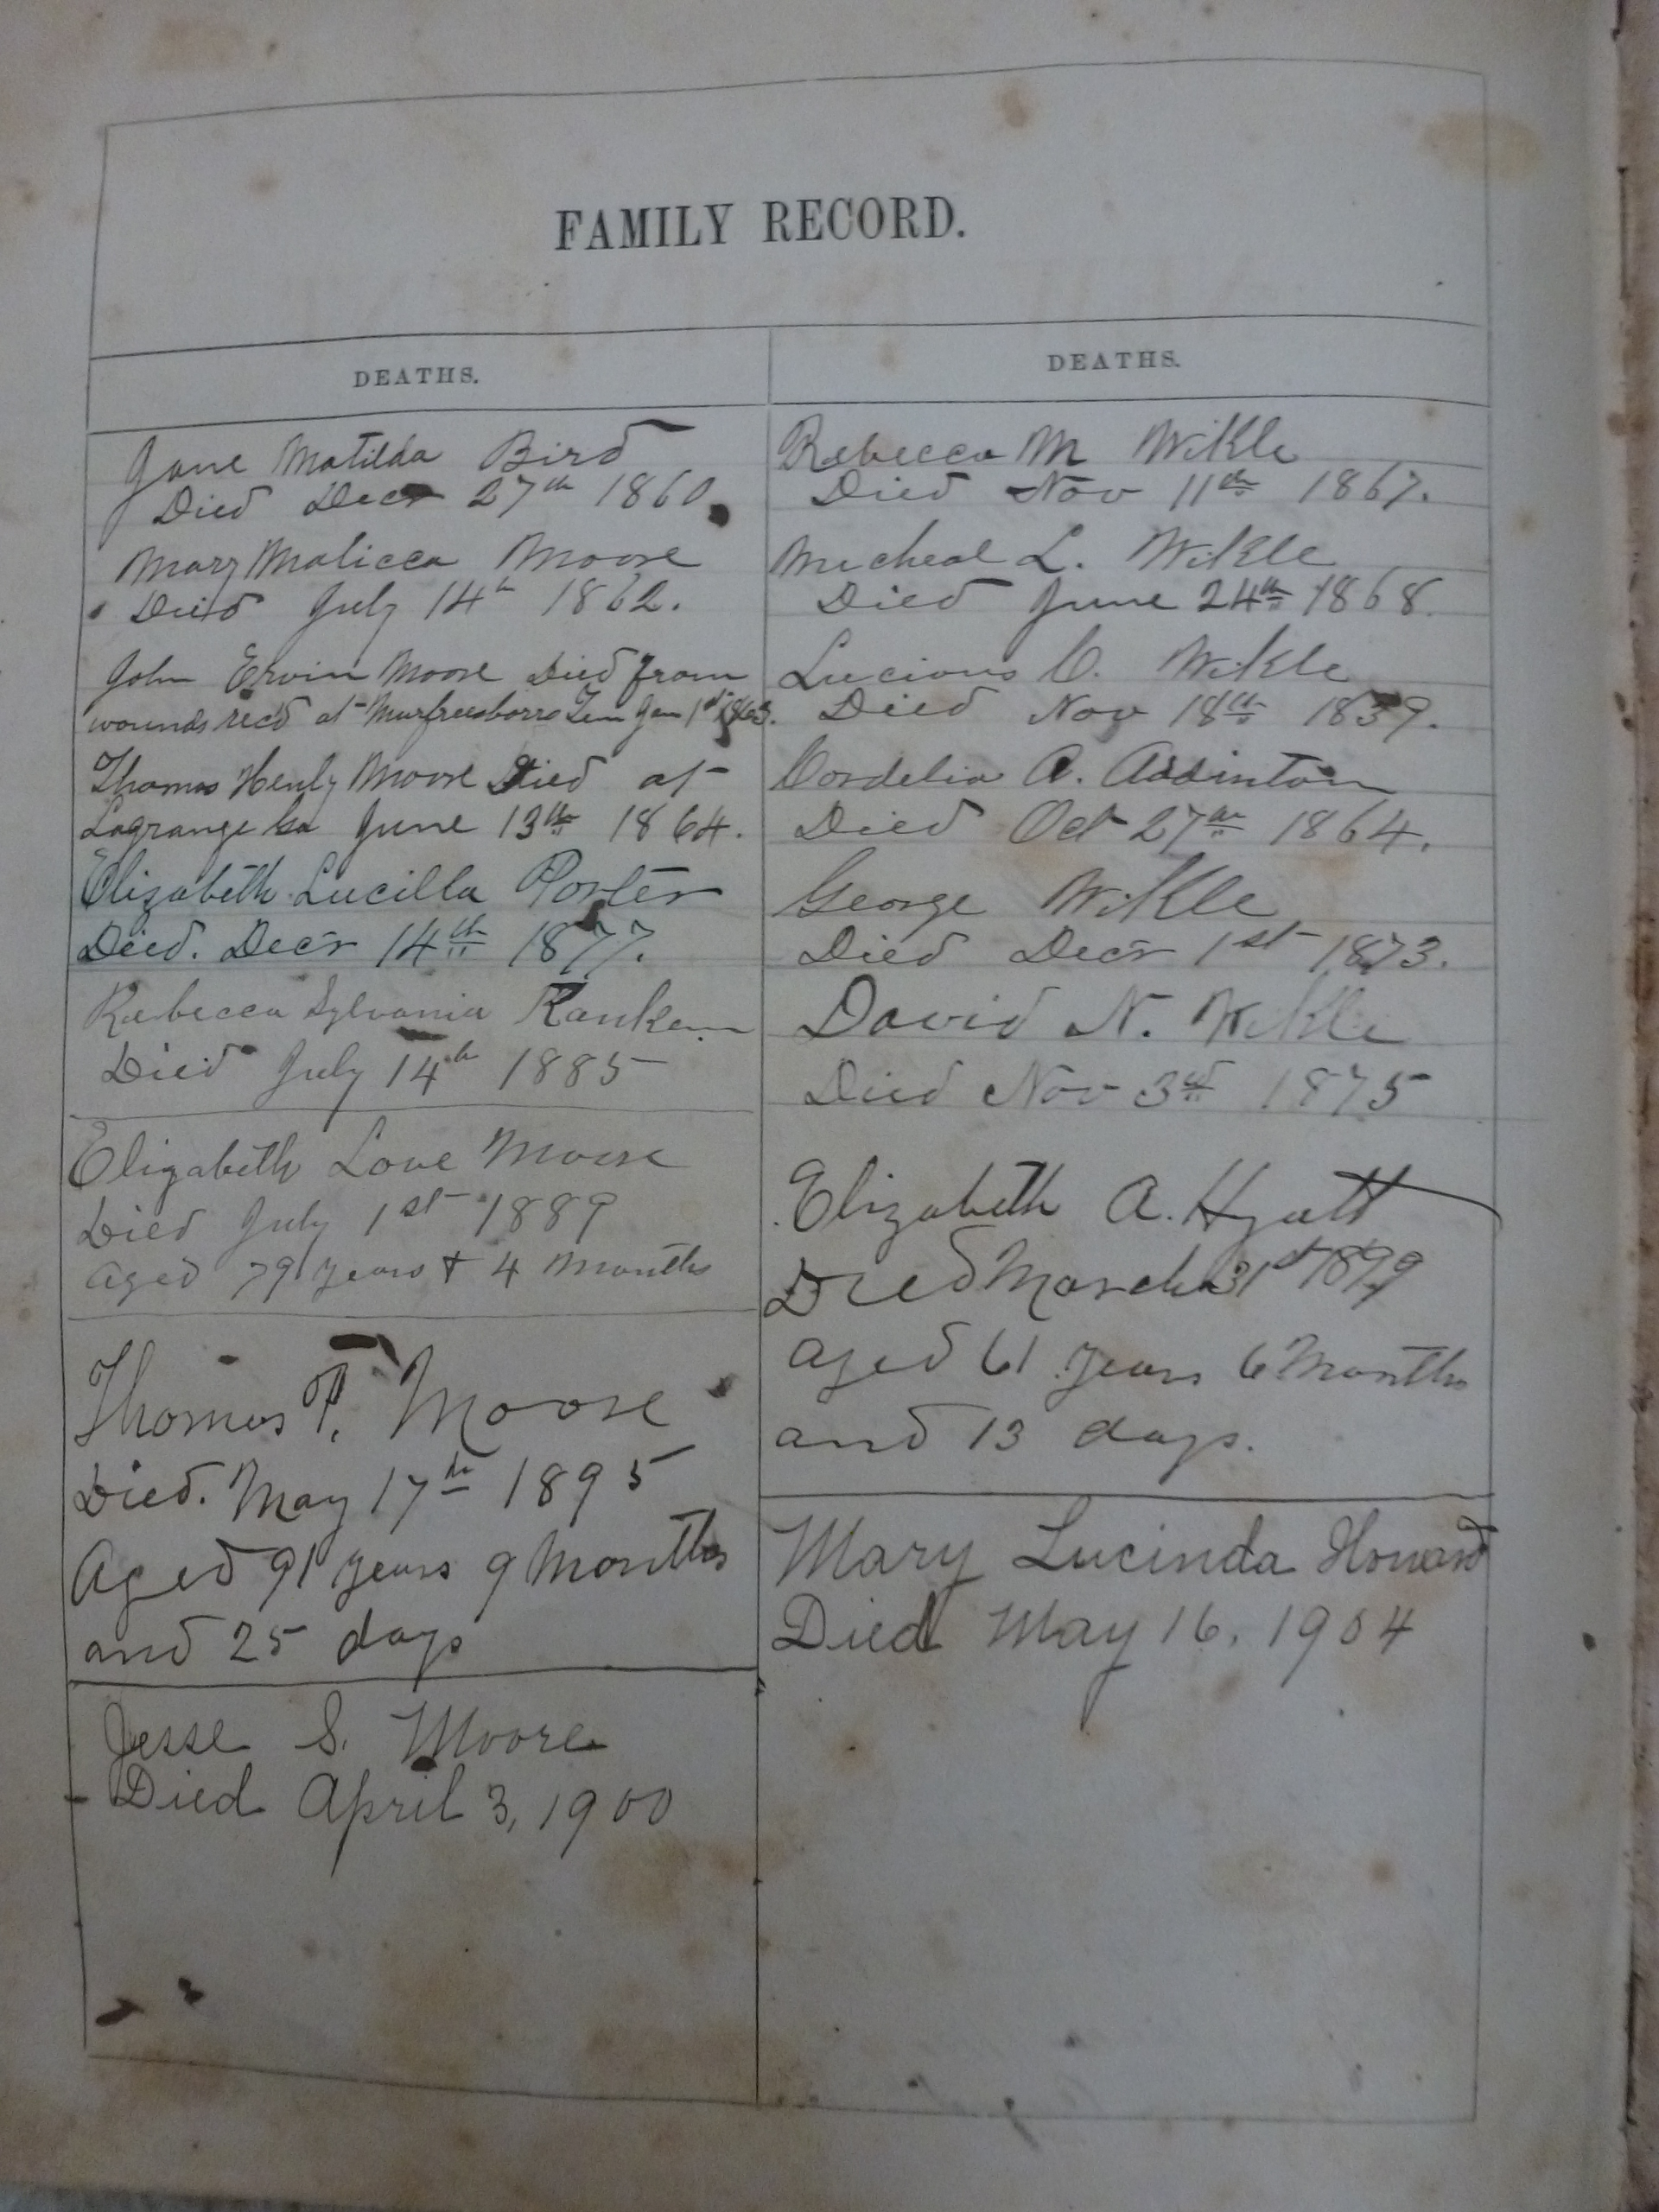 FAMILY RECORD.
DEATHS.
Jane Matilda Bird
Died Decr 27th 1860.
Mary Malicca Moore
Died July 14th 1862.
John Ervin Moore Died from
wounds recd at Murfreesborro Ten Jan 1st 1863.
Thomas Henly Moore Died at
Lagrange Ga June 13th 1864.
Elizabeth Lucilla Porter
Died. Decr 14th 1877.
Rebecca Sylvania Rankin
Died July 14th 1885
Elizabeth Love Moore
Died July 1st 1889
aged 79 years + 4 months
Thomas P. Moore
Died. May 17th 1895
Aged 91 years 9 Months
and 25 days
Jesse S. Moore
Died April 3, 1900
DEATHS.
Rebecca M Wikle
Died Nov 11th 1867.
Micheal L. Wikle
Died June 24th 1868.
Lucious C. Wikle
Died Nov 18th 1839.
Cordelia A. Addinton
Died Oct 27th 1864.
George Wikle
Died Decr 1st 1873.
David N. Wikle
Died Nov 3rd 1875
Elizabeth A. Hyatt
Died March 31st 1899
aged 61 years 6 Months
and 13 days.
Mary Lucinda Howard
Died May 16, 1904